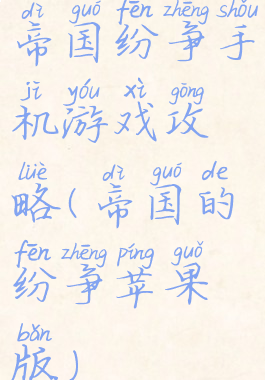 dì guó fēn zhēng shǒu
帝国纷争手
jī yóu xì gōng
机游戏攻
lüè dì guó de
略(帝国的
fēn zhēng píng guǒ
纷争苹果
bǎn
版)